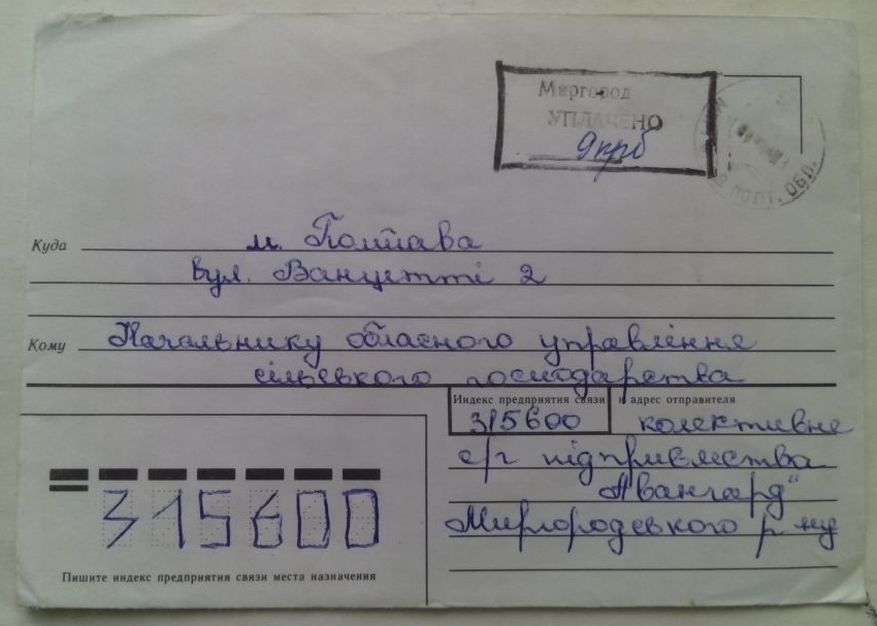 Миргород
УПЛАЧЕНО
Куда м. Полтава
вул. Ванцетті 2
Кому Начальнику обласного управління
сільського господарства
Индекс предприятия связи и адрес отправителя
315600 колективне
с/г підприємства
"Авангард"
Миргородського р-ну
315600
Пишите индекс предприятия связи места назначения